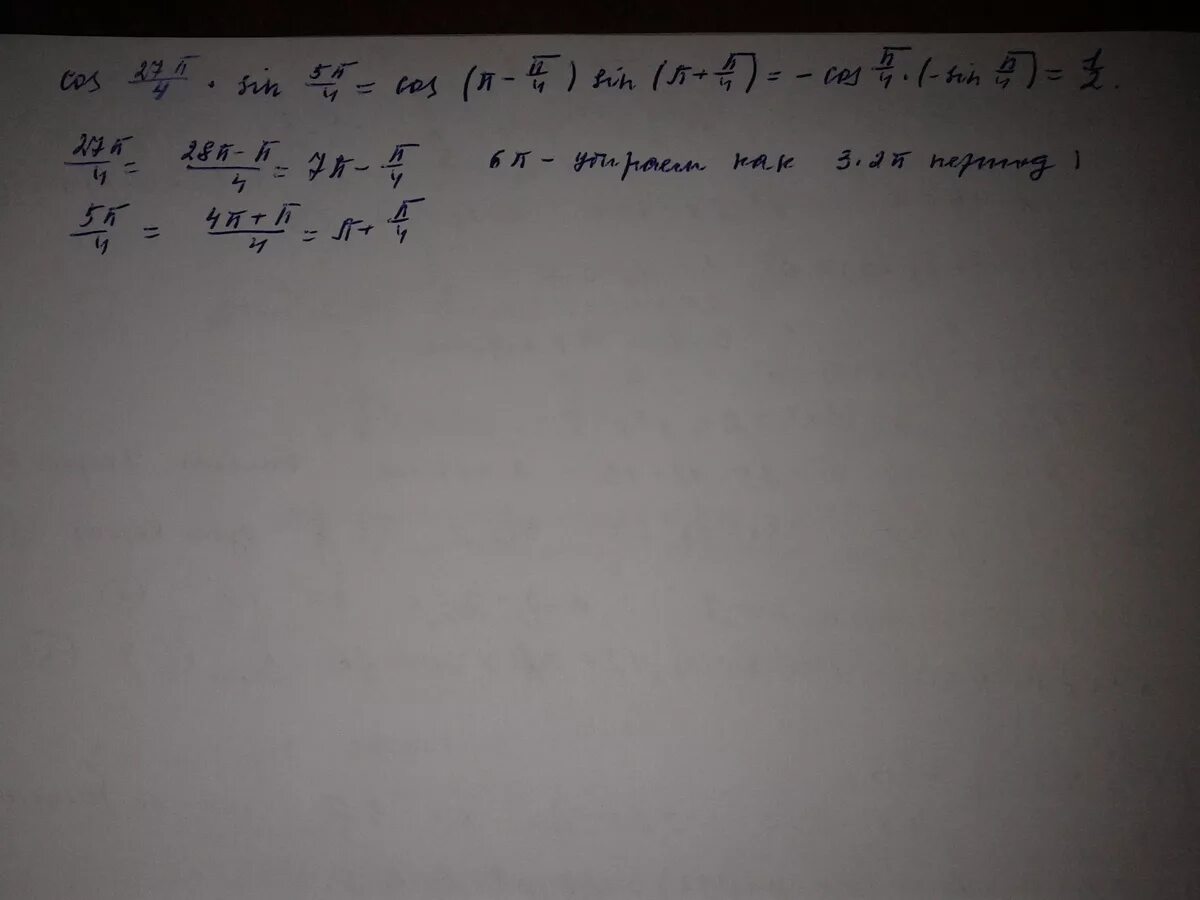 cos 27π/4 · sin 5π/4 = cos (π - π/4) sin (π + π/4) = - cos π/4 · (- sin π/4) = 1/2.
27π/4 = 28π - π/4 = 7π - π/4 6π - убираем как 3·2π период)
5π/4 = 4π + π/4 = π + π/4